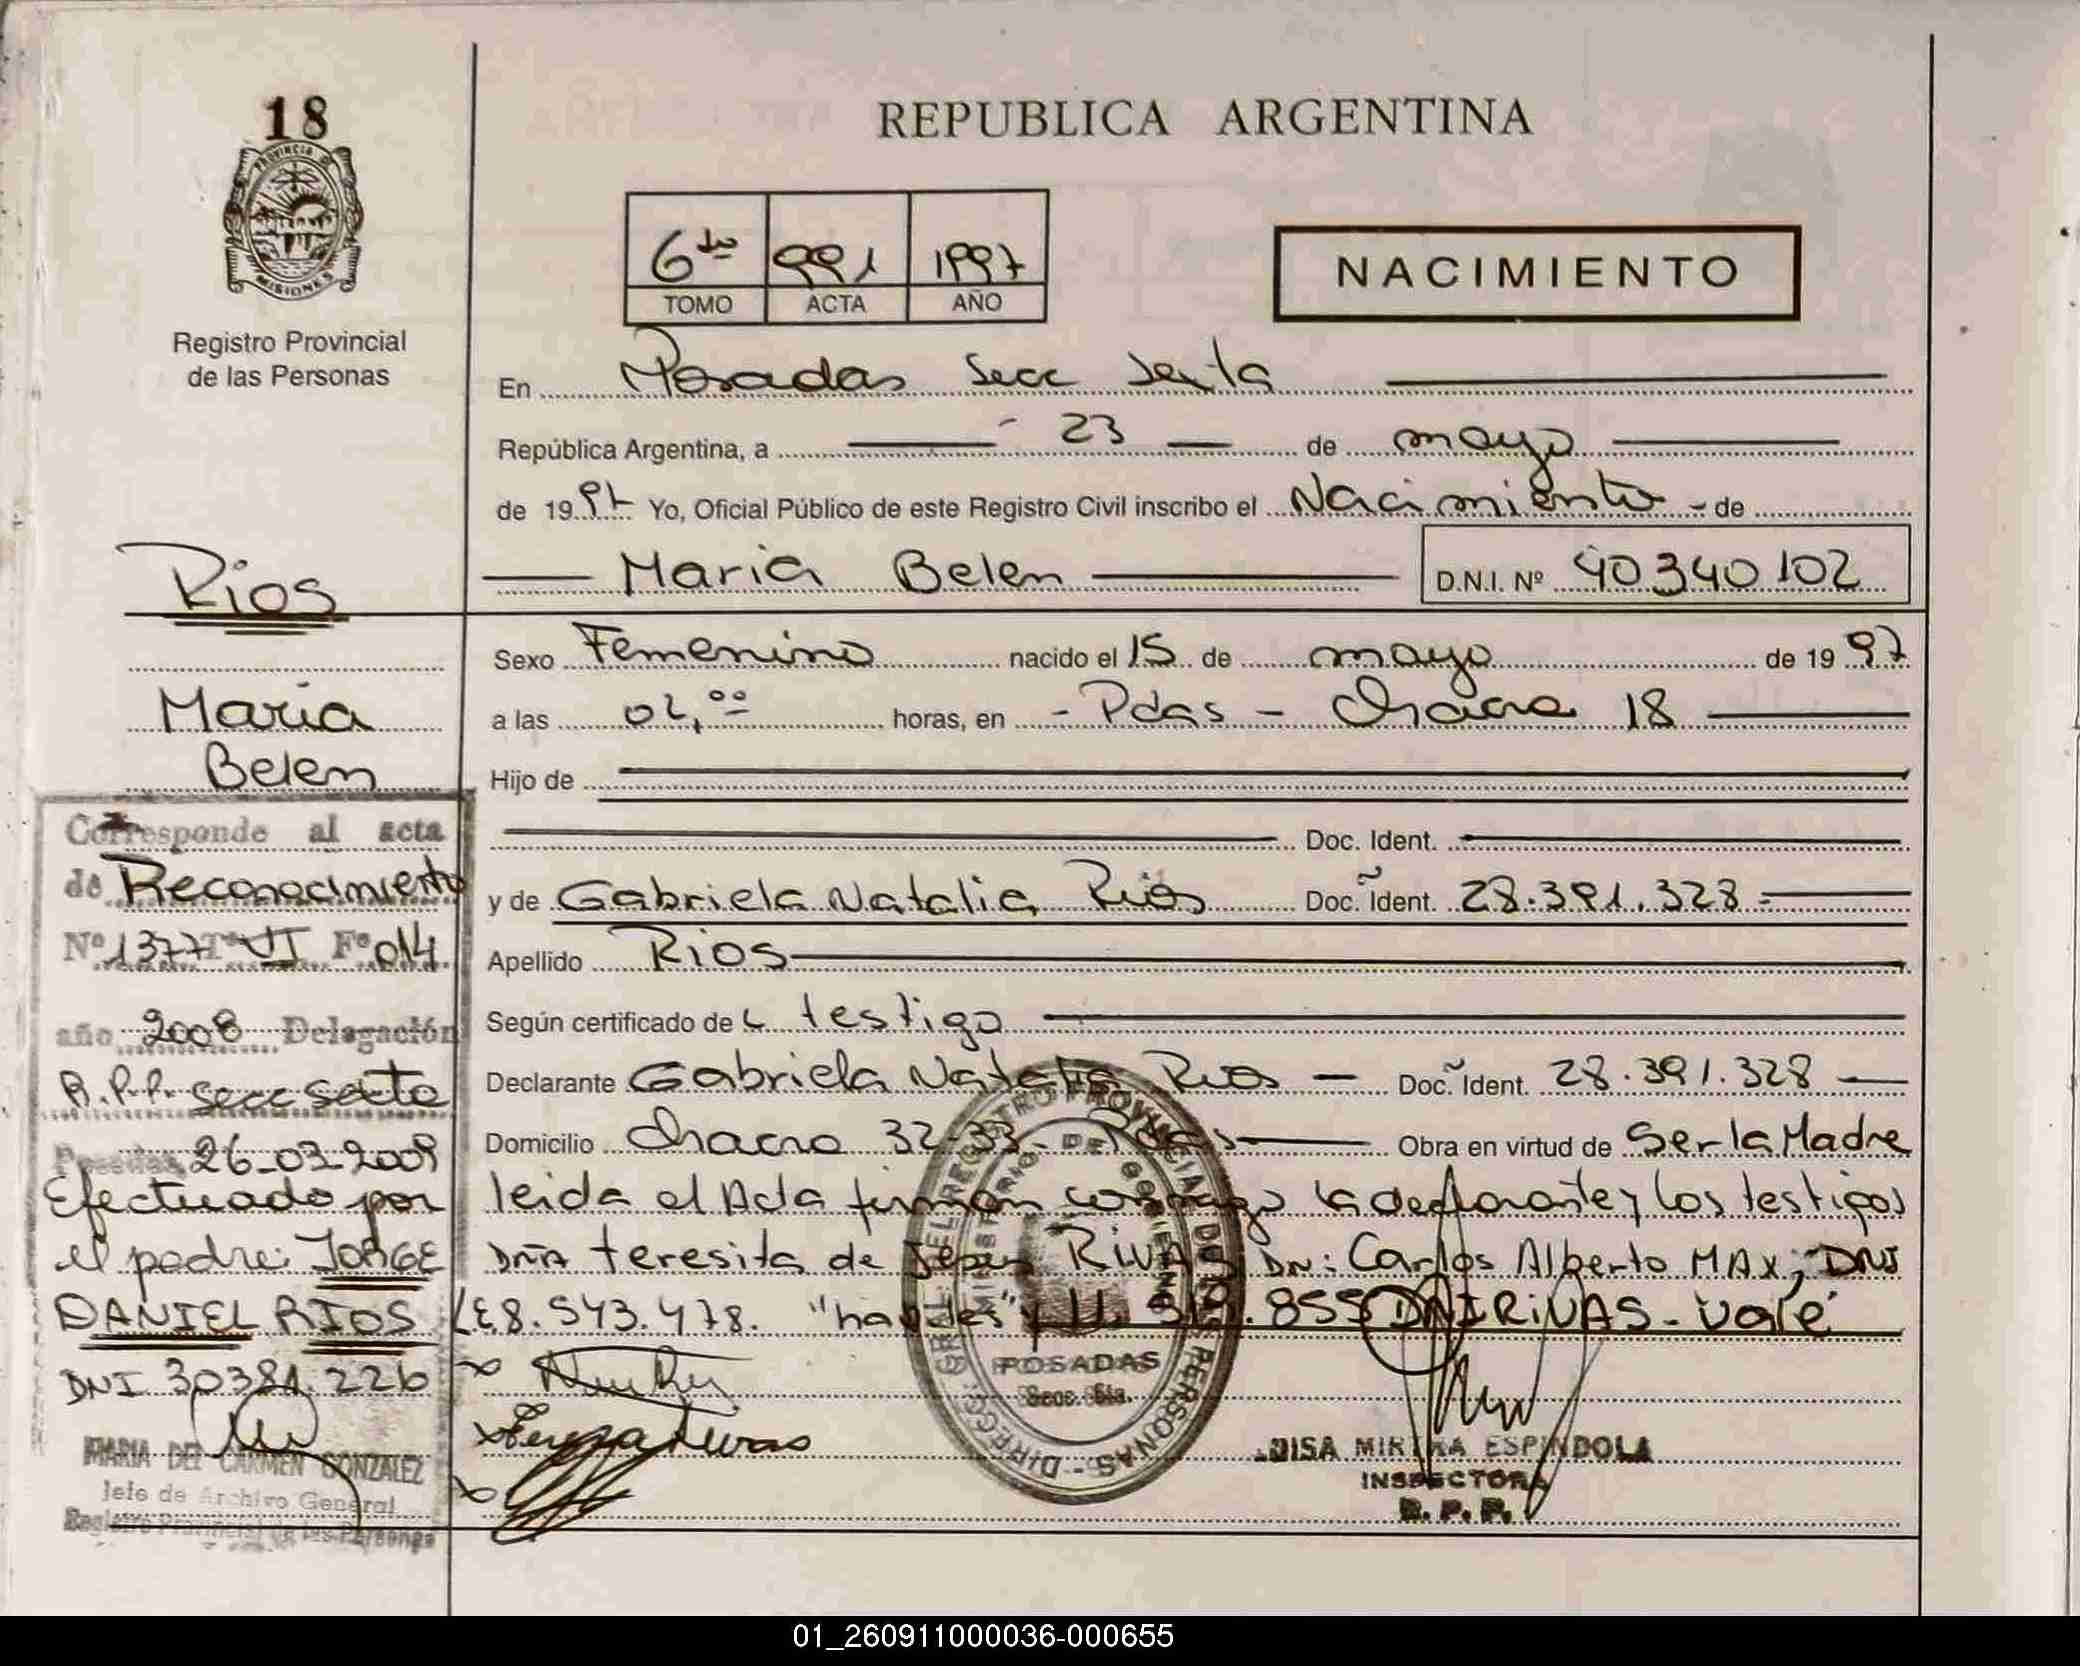 18
PROVINCIA DE
MISIONES
Registro Provincial
de las Personas
Rios
Maria
Belen
Corresponde al acta
de Reconocimiento
Nº 1377 Tº VI Fº 014
año 2008 Delegación
R.P.P. Secc Sexta
Posadas 26-03-2009
Efectuado por
el padre: JORGE
DANIEL RIOS
DNI 30381.226
MARIA DEL CARMEN GONZALEZ
Jefe de Archivo General
Registro Provincial de las Personas
REPUBLICA ARGENTINA
6to 991 1997
TOMO ACTA AÑO
NACIMIENTO
En Posadas Secc Sexta
República Argentina, a 23 de mayo
de 1997 Yo, Oficial Público de este Registro Civil inscribo el Nacimiento de
Maria Belen D.N.I. Nº 40340102
Sexo Femenino nacido el 15 de mayo de 1997
a las 02,00 horas, en - Pdas - Chacra 18
Hijo de
Doc. Ident.
y de Gabriela Natalia Rios Doc. Ident. 28.391.328
Apellido Rios
Según certificado de testigo
Declarante Gabriela Natalia Rios Doc. Ident. 28.391.328
Domicilio Chacra 32-33- Pdas Obra en virtud de Ser la Madre
leida el Acta firman conmigo la declarante y los testigos
DÑA teresita de Jesus RIVAS DN: Carlos Alberto MAX, DNI
LE8.543.478. DNI RIVAS - Vale
Teresa Rivas
DIRECC. GRAL. DEL REGISTRO PROVINCIAL DE LAS PERSONAS
MINISTERIO DE GOBIERNO
POSADAS
Secc. 6ta.
LUISA MIRTHA ESPINDOLA
INSPECTORA
R. P. P.
01_260911000036-000655